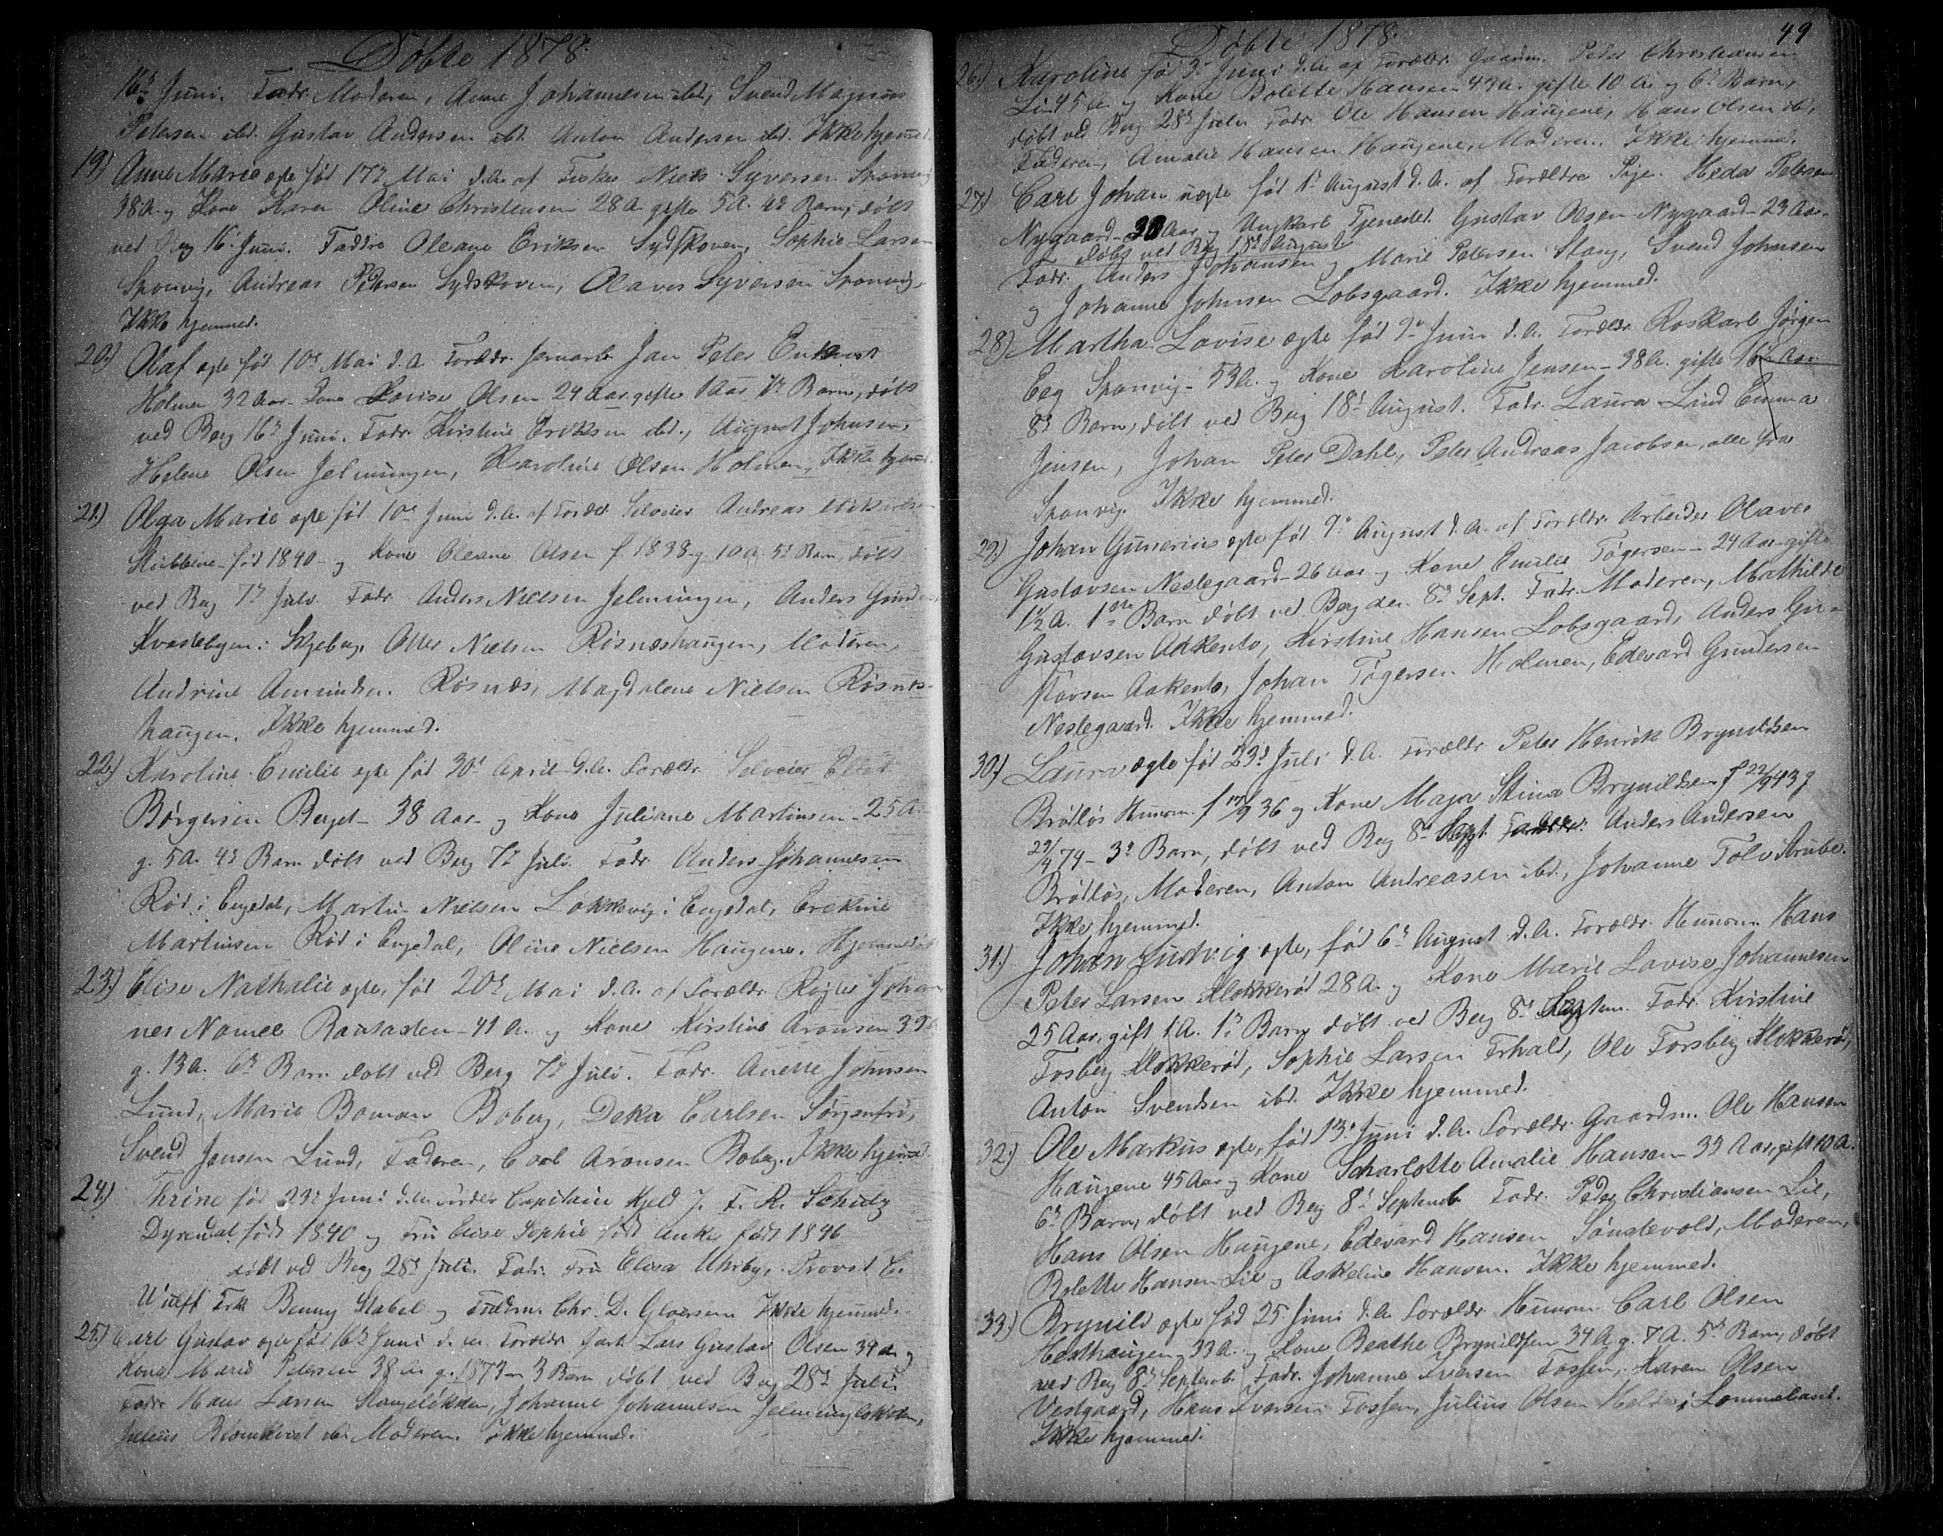 Döbte 1878.
16de Juni. Fadr. Moderen, Anne Johannesen ibd, Svend Magnus
Petersen ibd. Gustav Andersen ibd. Anton Andersen ibd. Ikke hjemmed.
19) Anne Marie egte född 17de Mai d.A. af Fisker Niels Syversen Sponvig
38 A. og Kone Karen Oline Christensen 28 A. gifte 5 A. 4de Barn, döbt
ved Berg 16 Juni. Faddre Oleane Eriksen Sydskoven, Sophie Larsen
Sponvig, Andreas Petersen Sydskoven, Olaves Syversen Sponvig.
Ikke hjemmed.
20) Olaf egte född 10de Mai d.A. Forældr. Jan Peter
Holmen 32 Aar. Kone Lovise Olsen 24 Aar gifte 1 Aar 1ste Barn, döbt
ved Berg 16de Juni. Fadr. Kirstine Eriksen ibd., August Johnsen,
Helene Olsen Jelmungen, Karoline Olsen Holmen, Ikke hjemmd.
21) Olga Marie egte född 10de Juni d.A. af Foreldr. Selveier Andreas
Stubbene född 1840 og Kone Oleane Olsen f. 1838 g. 10 A. 5te Barn, döbt
ved Berg 7de Juli. Fadr. Anders Nielsen Jelmungen, Anders
i Skjeberg, Nielsen Rösneshaugen, Moderen,
Andrine Amundsen Rösnæs, Magdalene Nielsen Rösnes-
haugen. Ikke hjemmed.
22) Karoline Emilie egte född 30te April d.A. Foreldr. Selveier
Börgersen Berget 38 Aar og Kone Juliane Martinsen 25 A.
g. 5 A. 4de Barn döbt ved Berg 7de Juli. Fadr. Anders Johannesen
Röd i Engedal, Martin Nielsen Lökkevig i Engedal,
Martinsen Röd i Engedal, Oline Nielsen Haugene. Hjemmedöbt
23) Elise Nathalie egte, född 20de Mai d.A. af Forældr. Johan
nes 41 A. og Kone Kirstine Aronsen 39
g. 13 A. 6te Barn döbt ved Berg 7de Juli. Fadr. Anette Johnsen
Lund, Marie Boman Boberg, Carlsen Sorgenfri,
Svend Jensen Lund, Faderen, Carl Aronsen Boberg. Ikke hjemmed
24) Thrine född 23de Juni d.A. Foreldr. Capitain Kjeld J. F. R. Schutz
Dyrendal född 1840 og Fru Elise Sophie född Anker född 1846
döbt ved Berg 28de Juli. Fadr. Fru Elisa Uhrby, Provst E.
Wulff, Frk Benny Stabel og Chr. D. Gloersen Ikke hjemmed.
25) Carl Gustav egte född 16de Juni d.A. Forældr. Lars Gustav Olsen 39 A. og
Kone Marie Petersen 38 A. g. 1873 3 Barn döbt ved Berg 28de Juli.
Fadr. Hans Larsen Stangelökken, Johanne Johannesen Jelmunglökken,
Julius Blomkvist ibd. Moderen. Ikke hjemmed.
49
Döbte 1878.
26) Karoline född 3de Juni d.A. af Foreldr. Gaardm. Peder Christiansen
Lie 45 A. og Kone Bolette Hansen 43 A. gifte 10 A. og 6te Barn,
döbt ved Berg 28de Juli. Fadr. Ole Hansen Haugene, Hans Olsen ibd,
Faderen, Amalie Hansen Haugene, Moderen. Ikke hjemmed.
27) Carl Johan uegte född 1ste August d.A. af Foreldre Pige Heda Petersen
Nygaard 30 Aar og Ungkarl Tjenestd. Gustav Olsen Nygaard 23 Aar.
döbt ved Berg 18de August
Fadr. Anders Johansen og Marie Petersen Stang, Svend Johnsen
og Johanne Johnsen Lobsgaard. Ikke hjemmed.
28) Martha Lovise egte född 9de Juni d.A. Foreldr. Roskarl Jörgen
Eeg Sponvig 53 A. og Kone Karoline Jensen 38 A. gifte 16 Aar
8de Barn, döbt ved Berg 18de August. Fadr. Laura Lind, Emma
Jensen, Johan Peter Dahl, Peter Andreas Jacobsen, alle fra
Sponvig. Ikke hjemmed.
29) Johan Gunerius egte född 9de August d.A. af Foreldr. Arbeider Olaves
Gustavsen Neslegaard 26 Aar og Kone Emilie Tögersen 24 Aar gifte
1½ A. 1ste Barn döbt ved Berg den 8de Sept. Fadr. Moderen, Mathilde
Gustavsen Aakento, Kirstine Hansen Lobsgaard, Anders Gu-
stavsen Aakento, Johan Tögersen Holmen, Edevard Gundersen
Neslegaard. Ikke hjemmed.
30) Laura egte född 23de Juli d.A. Foreldr. Peter Henrik Brynildsen
Brödlös Husm. f 17/9 36 og Kone Maja Stina Brynildsen f 22/9 43 g
29/4 74 3de Barn, döbt ved Berg 8de Sept. Faddr. Anders Andersen
Brödlös, Moderen, Anton Andreasen ibd, Johanne Tolv Strube.
Ikke hjemmed.
31) Johan Ludvig egte, född 6te August d.A. Foreldr. Husm. Hans
Peter Larsen Klokkeröd 28 A. og Kone Marie Lovise Johannesen
25 Aar, gift 1 A. 1ste Barn döbt ved Berg 8de Septem. Fadr. Kirstine
Fosberg Klokkeröd, Sophie Larsen Frhald, Ole Forsberg Klokkeröd,
Anton Svendsen ibd. Ikke hjemmed.
32) Ole Markus egte, född 13de Juni d.A. Foreldr. Gaardm. Ole Hansen
Haugene 45 Aar og Kone Scharlotte Amalie Hansen 33 Aar, gift 10 A.
6te Barn, döbt ved Berg 8de Septemb Fadr. Peder Christiansen Lie,
Hans Olsen Haugene, Edevard Hansen Söndevold, Moderen,
Bolette Hansen Lie og Askeline Hansen. Ikke hjemmed.
33) Brynild egte född 25 Juni d.A. Foreldr. Husm Carl Olsen
33 A. og Kone Beathe Brynildsen 34 A. g. 7 A. 5te Barn, döbt
ved Berg 8de Septemb. Fadr. Johanne Iversen Fossen, Karen Olsen
Vestgaard, Hans Iversen Fossen, Julius Olsen Holde i Sommeland.
Ikke hjemmed.